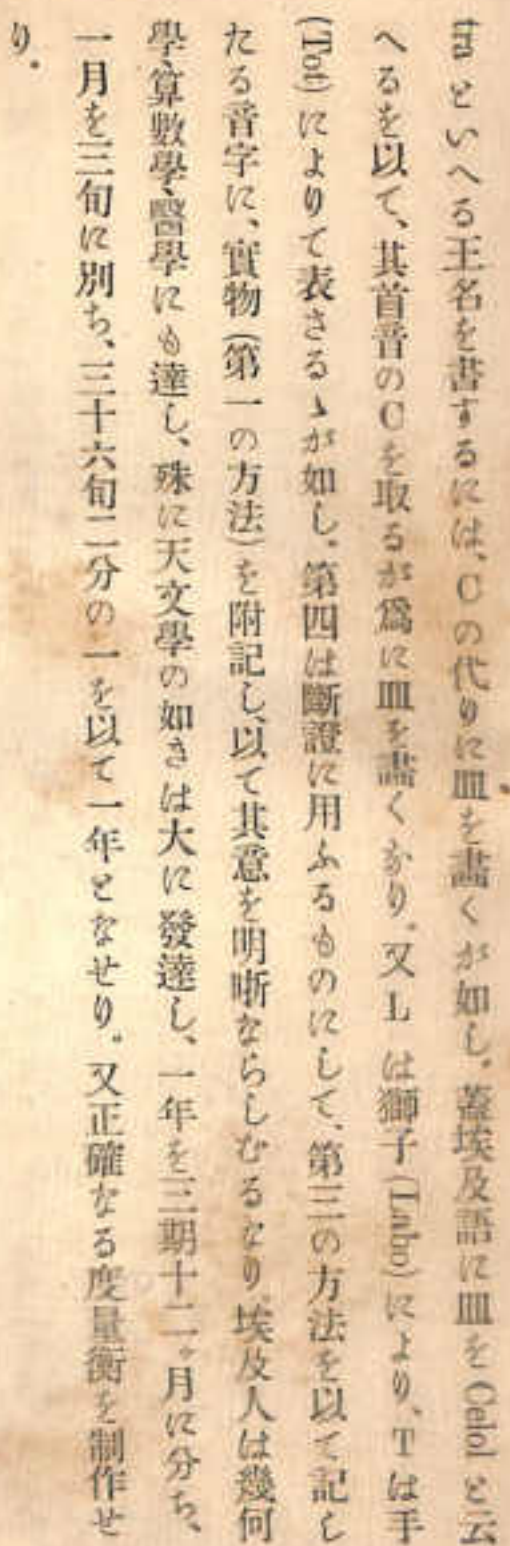 tra といへる王名を書するには、Cの代りに皿を畵くが如し。蓋埃及語に皿を Celol と云
へるを以て、其首音のCを取るが爲に皿を畵くなり。又L は獅子(Labo)により、Tは手
(Tot)によりて表さるゝが如し。第四は斷證に用ふるものにして、第三の方法を以て記し
たる音字に、實物(第一の方法)を附記し、以て其意を明晰ならしむるなり。埃及人は幾何
學、算數學、醫學にも達し、殊に天文學の如きは大に發達し、一年を三期十二ヶ月に分ち、
一月を三旬に別ち、三十六旬二分の一を以て一年となせり。又正確なる度量衡を制作せ
り。